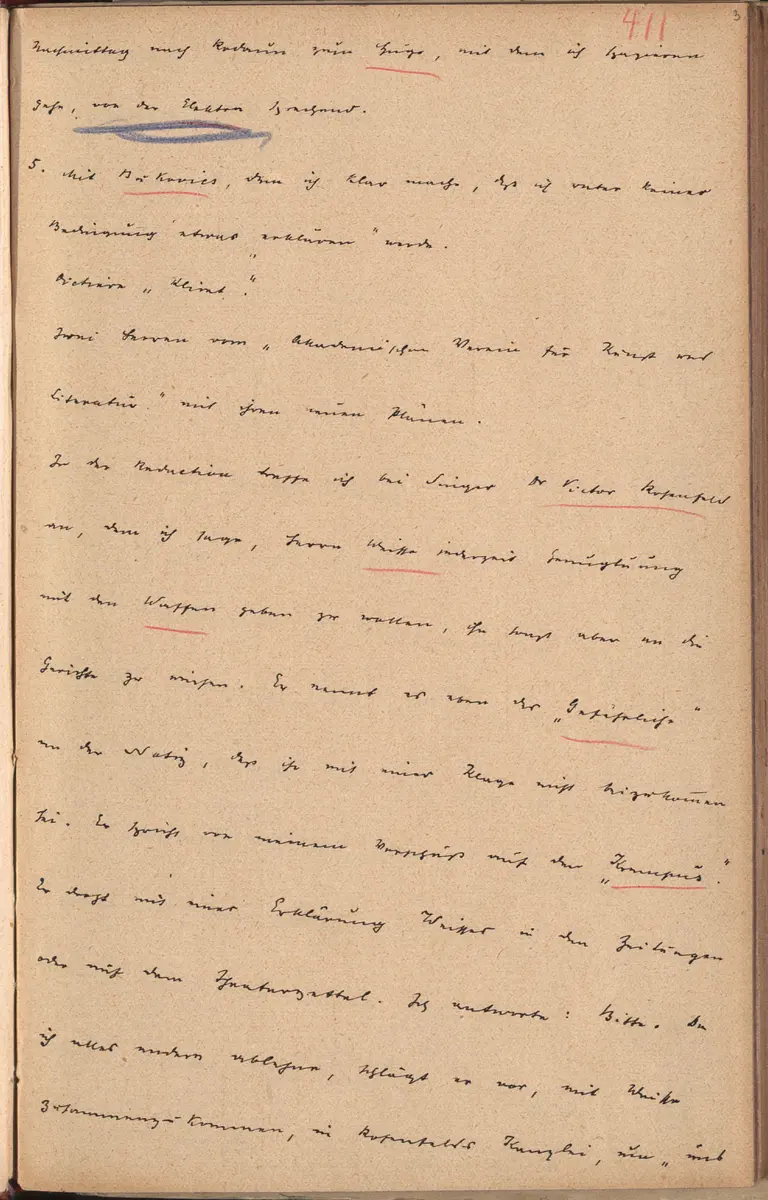 3
411
Nachmittag nach Rodaun zum Hugo, mit dem ich spazieren
gehe, von der Elektra sprechend.
5. Mit Bukovics, dem ich klar mache, daß ich unter keiner
Bedingung etwas „erklären“ werde.
Dictiere „Klimt“.
Zwei Herren vom „Akademischen Verein für Kunst und
Literatur“ mit ihren neuen Plänen.
In der Redaction treffe ich bei Singer Dr Victor Rosenfeld
an, dem ich sage, Herrn Weisse jederzeit Genugtuung
mit den Waffen geben zu wollen, ihn sonst aber an die
Gerichte zu weisen. Er nennt es eben das „Gefährliche“
an der Notiz, daß ihr mit einer Klage nicht beizukommen
sei. Er spricht von meinem Vorschuß auf den „Krampus“.
Er droht mit einer Erklärung Weisses in den Zeitungen
oder auf dem Theaterzettel. Ich antworte: Bitte. Da
ich alles andere ablehne, schlägt er vor, mit Weisse
zusammenzukommen, in Rosenfelds Kanzlei, um „uns